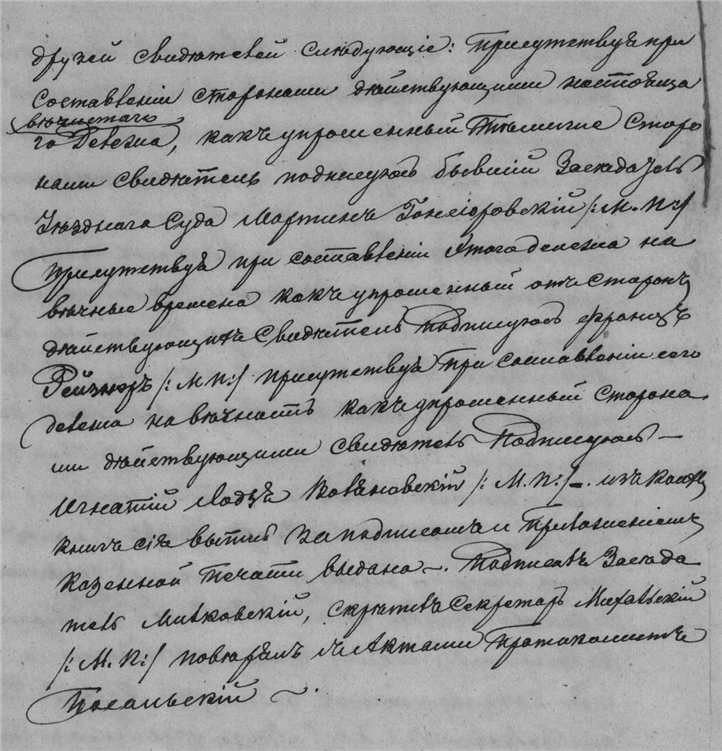 друзей свидѣтелей слѣдующіе: Присутствуя при
составленіи сторонами дѣйствующими настояща
вѣчистаго
го Дележа, какъ упрошенный тѣмиже сторо
нами свидѣтель подписуюсь бывшій Засѣдатель
Уѣзднаго Суда Мартинъ /:М.П:/
Присутствуя при составленіи этого дележа на
вѣчные времена какъ упрошенный отъ сторонъ
дѣйствующихъ свидѣтель подписуюсь Францъ
Рейзнеръ /:М.П:/ присутствуя при составленіи сего
дележа на вѣчность какъ упрошенный сторона
ми дѣйствующими свидѣтель подписуюсь —
Игнатій /:М.П:/ —. изъ каковыхъ
книгъ сія выпись за подписомъ и приложеніемъ
казенной печати выдана —. Подписалъ Засѣда
тель Милковскій, скрѣпилъ Секретарь
/:М.П:/ повѣрялъ съ Актами Протоколистъ